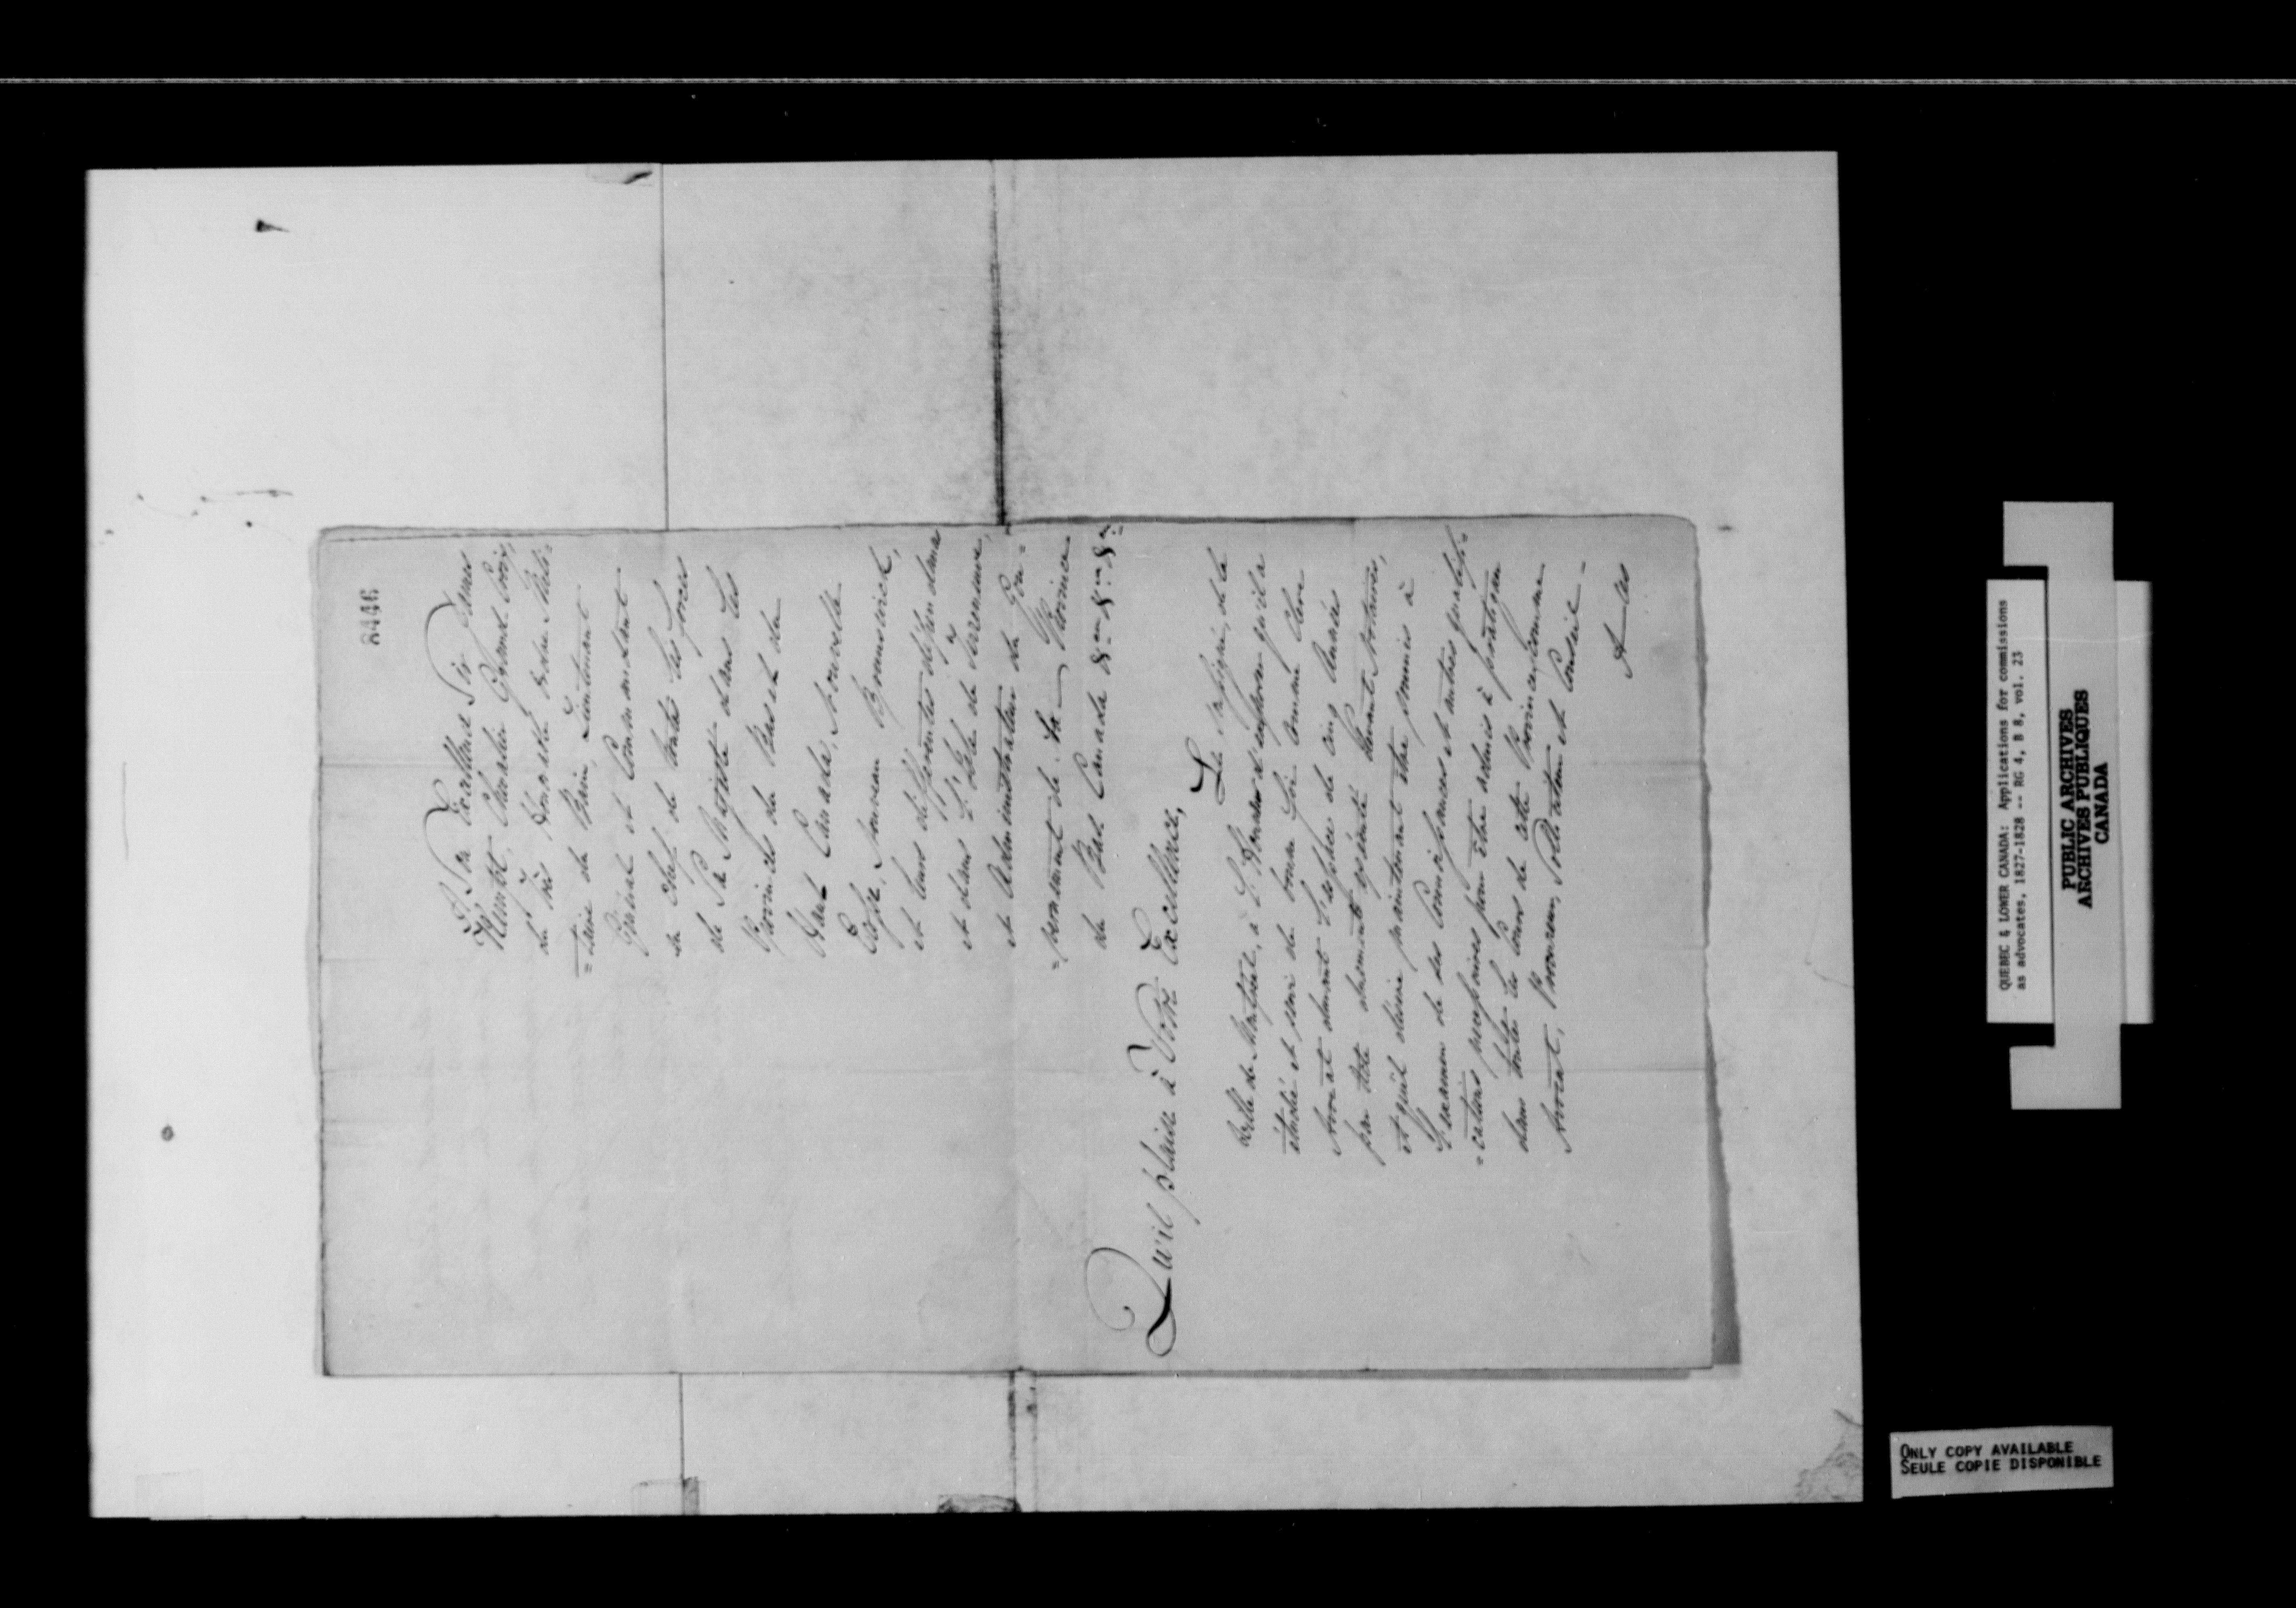 8446
A Son Excellence Sir James
Kempt, Chevalier Grand Croix,
du Très Honorable Ordre Mili-
=taire du Bain, Lieutenant
Général et Commandant
en Chef de toutes les forces
de Sa Majesté dans les
Provinces du Bas et du
Haut Canada, Nouvelle
Ecosse, Nouveau Brunswick,
et leurs différentes dépendances
et dans l'Isle de Terreneuve,
et Administrateur du Gou-
=vernement de la Province
du Bas Canada &ca &ca &ca
Qu'il plaise à Votre Excellence,
Le Soussigné, de la
Ville de Montréal, a l'honneur d'exposer qu'il a
étudié et servi de bonne foi comme Clerc
Avocat durant l'espace de cinq Années
par Acte dument exécuté devant Notaires,
et qu'il désire maintenant être soumis à
l'examen de ses Connaissances et autres qualifi-
=cations nécessaires pour être admis à pratiquer
dans toutes les Cours de cette Province, comme
Avocat, Procureur, Solliciteur et Conseil -
A ces
QUEBEC & LOWER CANADA: Applications for commissions
as advocates, 1827-1828 -- RG 4, B 8, vol. 23
PUBLIC ARCHIVES
ARCHIVES PUBLIQUES
CANADA
ONLY COPY AVAILABLE
SEULE COPIE DISPONIBLE